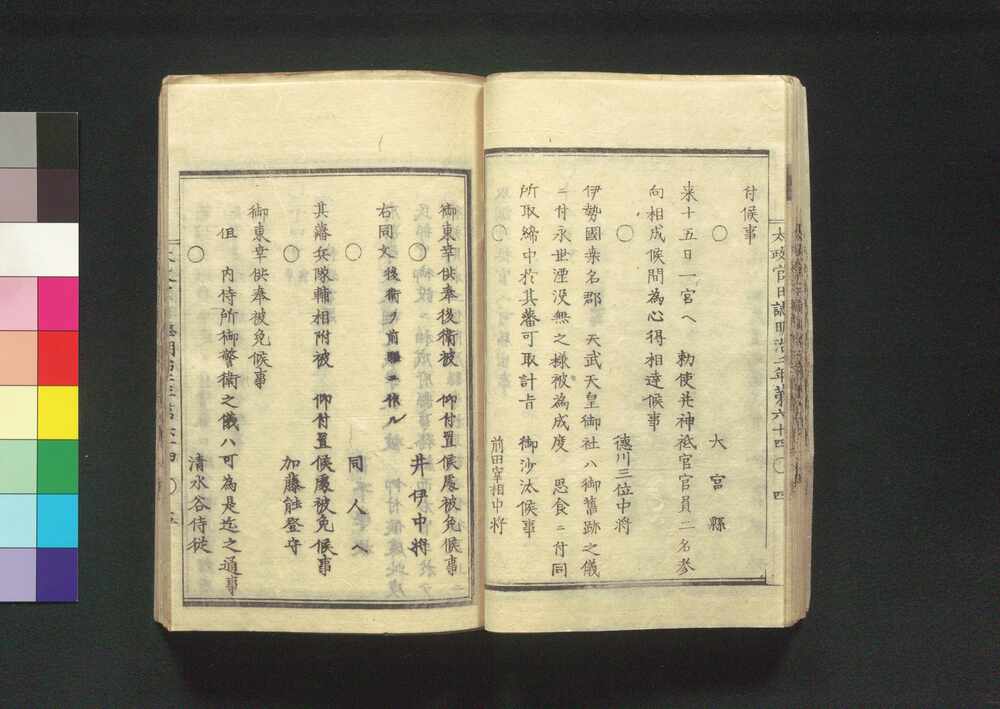 太政官日誌明治二年第六十四 〇 四
付候事
〇 大宮縣
来十五日一宮へ 勅使并神祇官官員二名参
向相成候間為心得相達候事
〇 徳川三位中将
伊勢國桑名郡 天武天皇御社ハ御舊跡之儀
ニ付永世湮没無之様被為成度 思食ニ付同
所取締中於其藩可取計旨 御沙汰候事
〇 前田宰相中将
御東幸供奉後衛被 仰付置候處被免候事
井伊中将
右同文後衛ヲ前駆ニ作ル
〇 同人へ
其藩兵隊輔相附被 仰付置候處被免候事
〇 加藤能登守
御東幸供奉被免候事
但 内侍所御警衛之儀ハ可為是迄之通事
〇 清水谷侍従